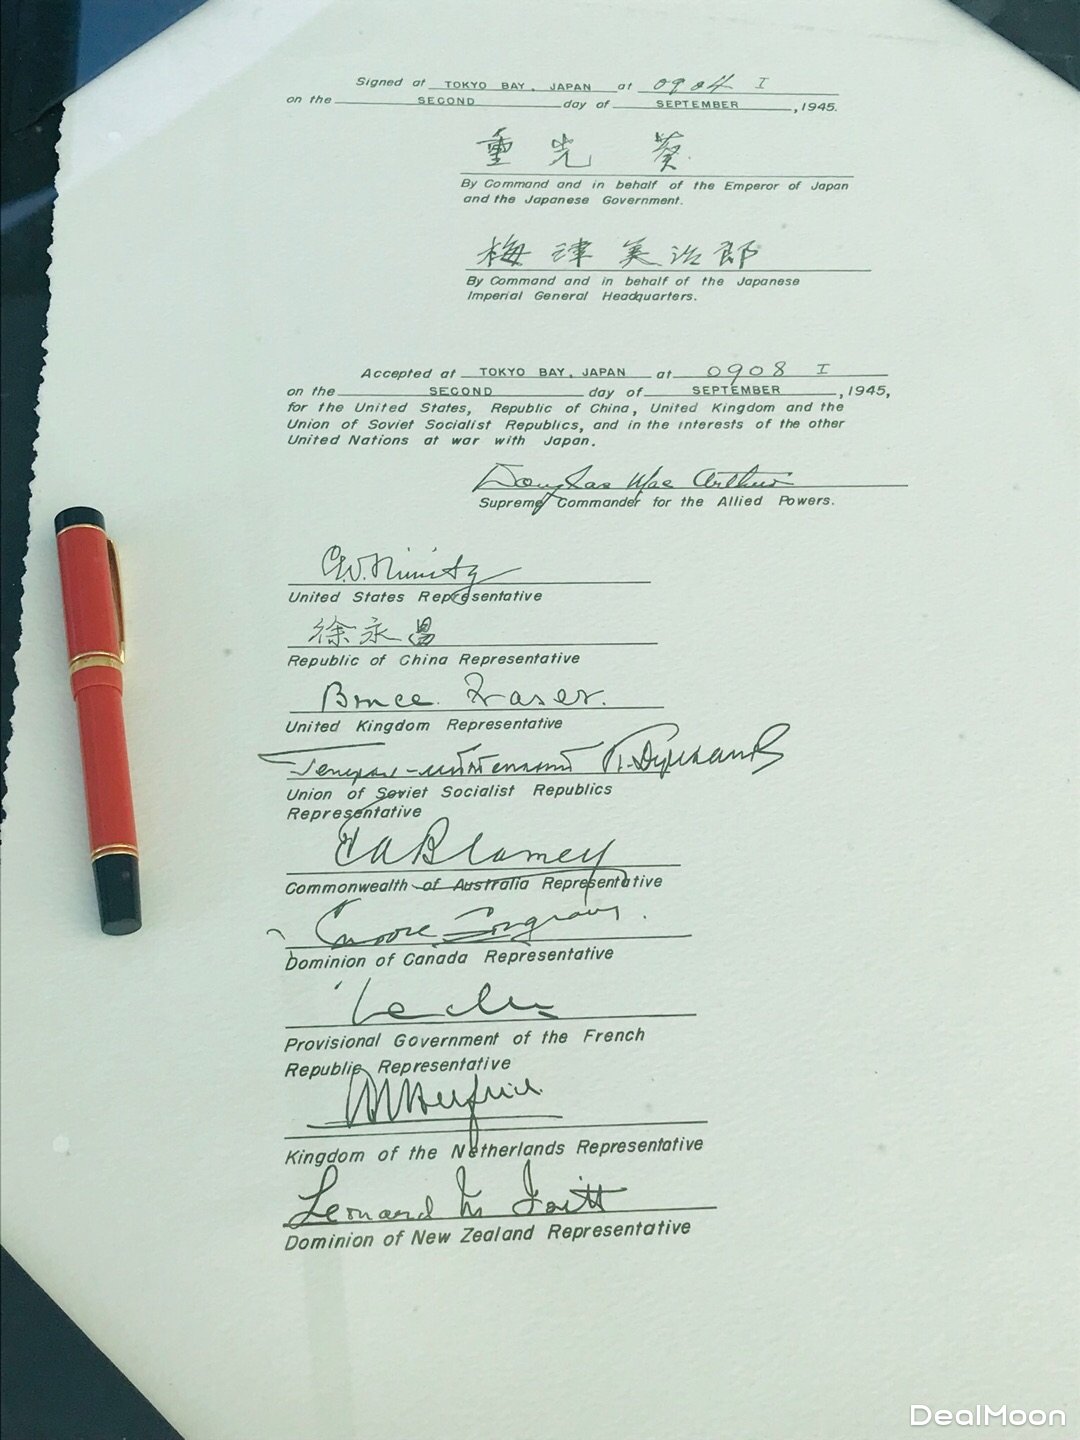 Signed at TOKYO BAY, JAPAN at 0904 I
on the SECOND day of SEPTEMBER, 1945.
重光 葵
By Command and in behalf of the Emperor of Japan
and the Japanese Government.
梅津美治郎
By Command and in behalf of the Japanese
Imperial General Headquarters.
Accepted at TOKYO BAY, JAPAN at 0908 I
on the SECOND day of SEPTEMBER, 1945,
for the United States, Republic of China, United Kingdom and the
Union of Soviet Socialist Republics, and in the interests of the other
United Nations at war with Japan.
Douglas MacArthur
Supreme Commander for the Allied Powers.
C.W. Nimitz
United States Representative
徐永昌
Republic of China Representative
Bruce Fraser.
United Kingdom Representative
Генерал-лейтенант
Union of Soviet Socialist Republics
Representative
T.A. Blamey
Commonwealth of Australia Representative
Moore Cosgrave.
Dominion of Canada Representative
Provisional Government of the French
Republic Representative
Kingdom of the Netherlands Representative
Leonard M Isitt
Dominion of New Zealand Representative
DealMoon